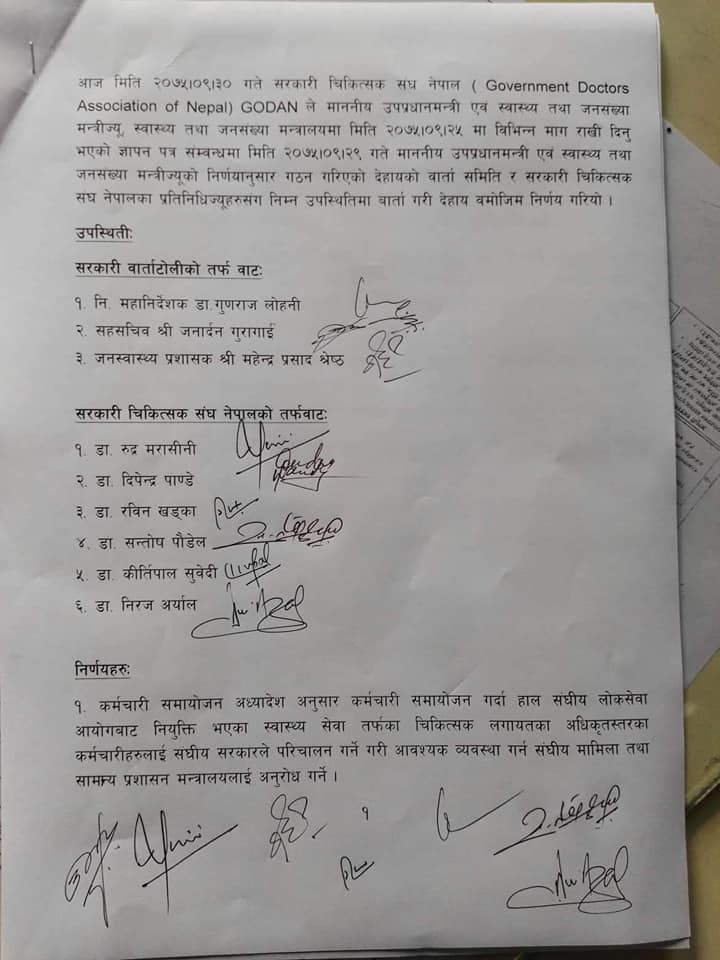 आज मिति २०७५।०९।३० गते सरकारी चिकित्सक संघ नेपाल ( Government Doctors
Association of Nepal) GODAN ले माननीय उपप्रधानमन्त्री एवं स्वास्थ्य तथा जनसंख्या
मन्त्रीज्यू, स्वास्थ्य तथा जनसंख्या मन्त्रालयमा मिति २०७५।०९।२५ मा विभिन्न माग राखी दिनु
भएको ज्ञापन पत्र सम्वन्धमा मिति २०७५।०९।२९ गते माननीय उपप्रधानमन्त्री एवं स्वास्थ्य तथा
जनसंख्या मन्त्रीज्यूको निर्णयानुसार गठन गरिएको देहायको वार्ता समिति र सरकारी चिकित्सक
संघ नेपालका प्रतिनिधिज्यूहरुसंग निम्न उपस्थितिमा बार्ता गरी देहाय वमोजिम निर्णय गरियो ।
उपस्थितीः
सरकारी वार्ताटोलीको तर्फ वाटः
१. नि. महानिर्देशक डा.गुणराज लोहनी
२. सहसचिव श्री जनार्दन गुरागाई
३. जनस्वास्थ्य प्रशासक श्री महेन्द्र प्रसाद श्रेष्ठ
सरकारी चिकित्सक संघ नेपालको तर्फवाटः
१. डा. रुद्र मरासीनी
२. डा. दिपेन्द्र पाण्डे
३. डा. रविन खड्का
४. डा. सन्तोष पौडेल
५. डा. कीर्तिपाल सुवेदी
६. डा. निरज अर्याल
निर्णयहरुः
१. कर्मचारी समायोजन अध्यादेश अनुसार कर्मचारी समायोजन गर्दा हाल संघीय लोकसेवा
आयोगबाट नियुक्ति भएका स्वास्थ्य सेवा तर्फका चिकित्सक लगायतका अधिकृतस्तरका
कर्मचारीहरुलाई संघीय सरकारले परिचालन गर्ने गरी आवश्यक व्यवस्था गर्न संघीय मामिला तथा
सामान्य प्रशासन मन्त्रालयलाई अनुरोध गर्ने ।
१